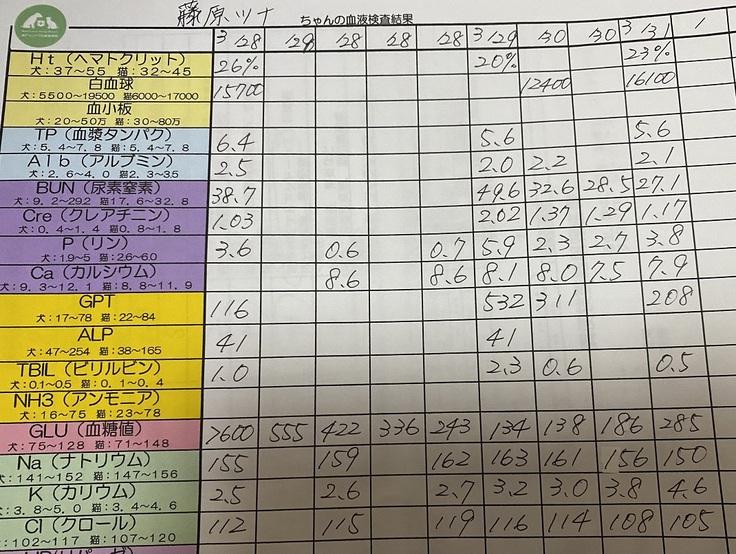 藤原ツナ ちゃんの血液検査結果
3/28 /29 /28 /28 /28 3/29 /30 /30 3/31 /
Ht(ヘマトクリット) 26% 20% 23%
犬:37~55 猫:32~45
白血球 15700 12400 16100
犬:5500~19500 猫6000~17000
血小板
犬:20~50万 猫:30~80万
TP(血漿タンパク) 6.4 5.6 5.6
犬:5.4~7.8 猫:5.4~7.8
Alb(アルブミン) 2.5 2.0 2.2 2.1
犬:2.6~4.0 猫2.3~3.5
BUN(尿素窒素) 38.7 49.6 32.6 28.5 27.1
犬:9.2~29.2 猫17.6~32.8
Cre(クレアチニン) 1.03 2.02 1.37 1.29 1.17
犬:0.4~1.4 猫0.8~1.8
P(リン) 3.6 0.6 0.7 5.9 2.3 2.7 3.8
犬:1.9~5 猫:2.6~6.0
Ca(カルシウム) 8.6 8.6 8.1 8.0 7.5 7.9
犬:9.3~12.1 猫:8.8~11.9
GPT 116 532 311 208
犬:17~78 猫:22~84
ALP 41 41
犬:47~254 猫:38~165
TBIL(ビリルビン) 1.0 2.3 0.6 0.5
犬:0.1~0.5 猫:0.1~0.4
NH3(アンモニア)
犬:16~75 猫:23~78
GLU(血糖値) >600 555 422 336 243 134 138 186 285
犬:75~128 猫:71~148
Na(ナトリウム) 155 159 162 163 161 156 150
犬:141~152 猫:147~156
K(カリウム) 2.5 2.6 2.7 3.2 3.0 3.8 4.6
犬:3.8~5.0 猫:3.4~4.6
Cl(クロール) 112 115 119 116 114 108 105
:102~117 猫:107~120